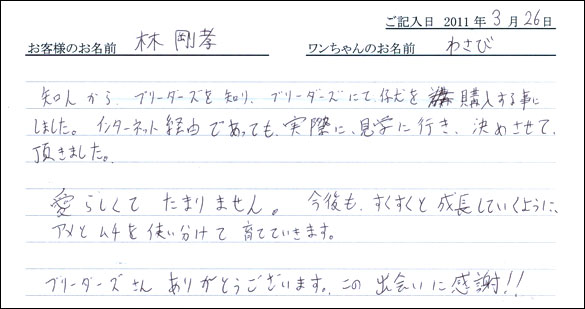 ご記入日 2011年3月26日
お客様のお名前 林 剛孝 ワンちゃんのお名前 わさび
知人から、ブリーダーズを知り、ブリーダーズにて、仔犬を購入する事に
しました。インターネット経由であっても、実際に、見学に行き、決めさせて
頂きました。
愛らしくて たまりません。 今後も、すくすくと成長していくように、
アメとムチを使い分けて育てていきます。
ブリーダーズさん ありがとうございます。この出会いに感謝!!